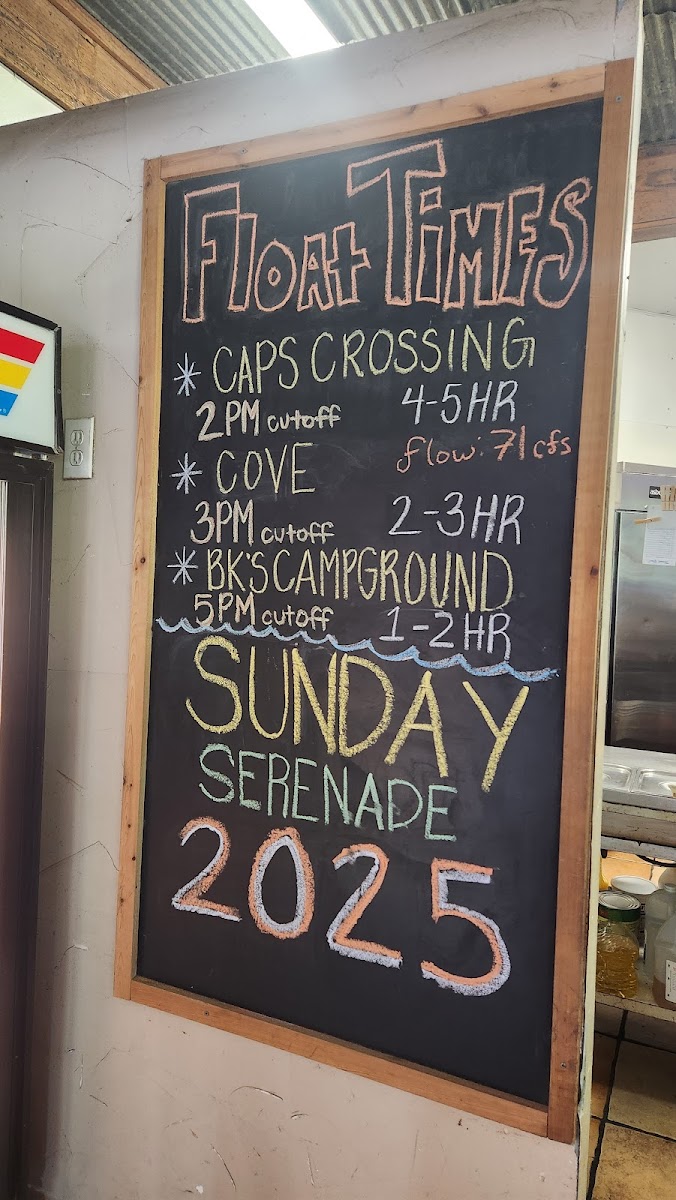 Float Times
* CAPS CROSSING
2PM cutoff 4-5HR
flow: 71 cfs
* COVE
3PM cutoff 2-3HR
* BK'S CAMPGROUND
5PM cutoff 1-2HR
SUNDAY
SERENADE
2025